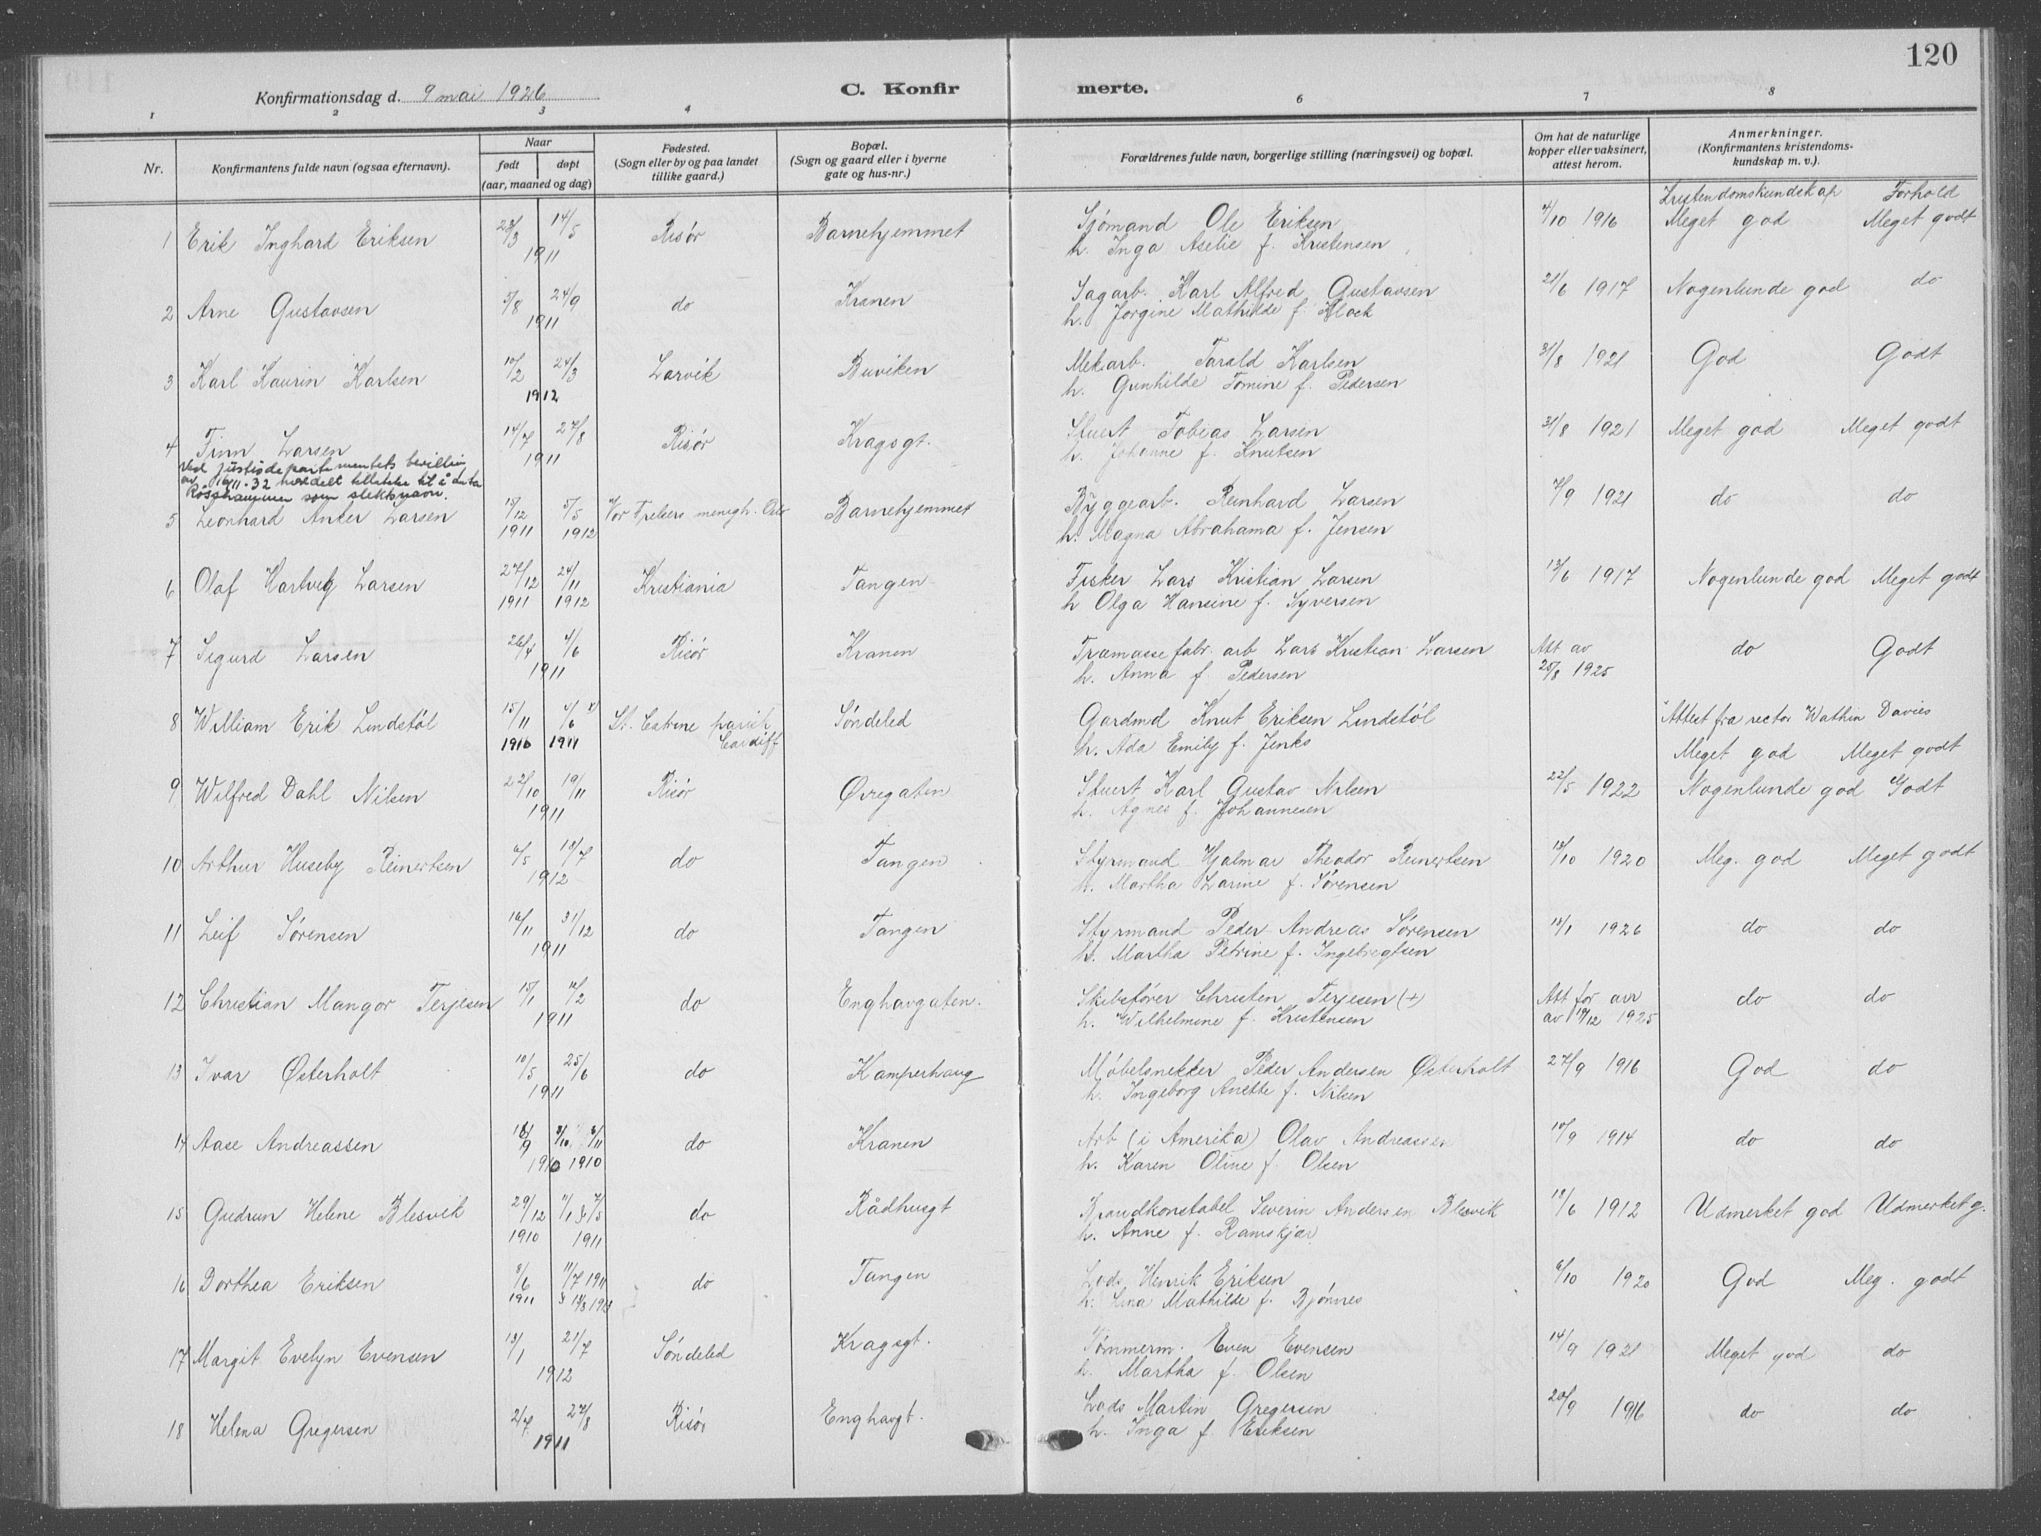 120
Konfirmationsdag d. 9 mai 1926
C. Konfirmerte.
1 2 3 4 6 7 8
Nr.
Konfirmantens fulde navn (ogsaa efternavn).
Naar
født døpt
(aar, maaned og dag)
Fødested.
(Sogn eller by og paa landet
tillike gaard.)
Bopæl.
(Sogn og gaard eller i byerne
gate og hus-nr.)
Forældrenes fulde navn, borgerlige stilling (næringsvei) og bopæl.
Om hat de naturlige
kopper eller vaksinert,
attest herom.
Anmerkninger.
(Konfirmantens kristendoms-
kundskap m. v.).
Kristendomskundskap Forhold
1 Erik Inghard Eriksen 28/3 14/5 Risør Barnehjemmet Sjømand Ole Eriksen 4/10 1916 Meget god Meget godt
1911 h. Inga Aselie f. Kristensen
2 Arne Gustavsen 5/8 24/9 do Kranen Sagarb. Karl Alfred Gustavsen 21/6 1917 Nogenlunde god do
1911 h. Jørgine Mathilde f. Klock
3 Karl Kaurin Karlsen 10/2 24/3 Larvik Buviken Mekarb. Tarald Karlsen 31/8 1921 God Godt
1912 h. Gunhilde Tomine f. Pedersen
4 Finn Larsen 14/7 27/8 Risør Kragsgt. Stuert Tobias Larsen 31/8 1921 Meget god Meget godt
1911 h. Johanne f. Knutsen
Ved justisdepartementets bevilling
av 16/11-32 meddelt tillatelse til å anta
Rosshammer som slektsnavn.
5 Leonhard Anker Larsen 15/12 5/5 Vor Frelsers menigh. Oslo Barnehjemmet Byggearb. Reinhard Larsen 7/9 1921 do do
1911 1912 h. Magna Abrahama f. Jensen
6 Olaf Hartvig Larsen 27/12 24/11 Kristiania Tangen Fisker Lars Kristian Larsen 13/6 1917 Nogenlunde god Meget godt
1911 1912 h Olga Hansine f. Syversen
7 Sigurd Larsen 26/4 4/6 Risør Kranen Tramasse fabr. arb Lars Kristian Larsen Att av do Godt
1911 h. Anna f Pedersen 25/8 1925
8 William Erik Lindstøl 15/11 4/6 x) St. Catrine parish Søndeled Gardmd Knut Eriksen Lindstøl x Attest fra rector Wathin Davies
1910 1911 Cardiff h. Ada Emily f. Jenks Meget god Meget godt
9 Wilfred Dahl Nilsen 22/10 19/11 Risør Øvregaten Stuert Karl Gustav Nilsen 22/5 1922 Nogenlunde god Godt
1911 h. Agnes f. Johannesen
10 Arthur Huseby Reinertsen 6/5 13/7 do Tangen Styrmand Hjalmar Theodor Reinertsen 13/10 1920 Meg. god Meget godt
1912 h. Martha Larine f. Sørensen
11 Leif Sørensen 16/11 31/12 do Tangen Styrmand Peder Andreas Sørensen 13/1 1926 do do
1911 h. Martha Petrine f. Ingebregtsen
12 Christian Mangor Terjesen 15/1 14/2 do Enghavgaten. Skibsfører Christen Terjesen (+) Att for avv do do
1911 h. Wilhelmine f. Kristensen av 19/12 1925
13 Ivar Østerholt 10/5 25/6 do Kamperhaug Møbelsnekker Peder Andersen Østerholt 27/9 1916 God do
1911 h. Ingeborg Anette f. Nilsen
14 Aase Andreassen 18/9 3/10 6/11 do Kranen Arb (i Amerika) Olav Andreassen 10/9 1914 do do
1910 1910 h. Karen Oline f. Olsen
15 Gudrun Helene Blesvik 29/12 1/1 7/5 do Rådhusgt Brandkonstabel Severin Andersen Blesvik 18/6 1912 Udmerket god Udmerket g.
1910 1911 h. Anne f. Ramskjær
16 Dorthea Eriksen 8/6 11/7 1911 do Tangen Lods Henrik Eriksen 6/10 1920 God Meg. godt
1911 h. Lina Mathilde f. Bjønnes
17 Margit Evelyn Evensen 13/1 21/7 Søndeled Kragsgt. Tømmerm. Even Evensen 14/9 1921 Meget god do
1912 h. Martha f. Olsen
18 Helena Gregersen 2/7 27/8 Risør Enghavgt. Lods Martin Gregersen 20/9 1916 do do
1911 h. Inga f Eriksen